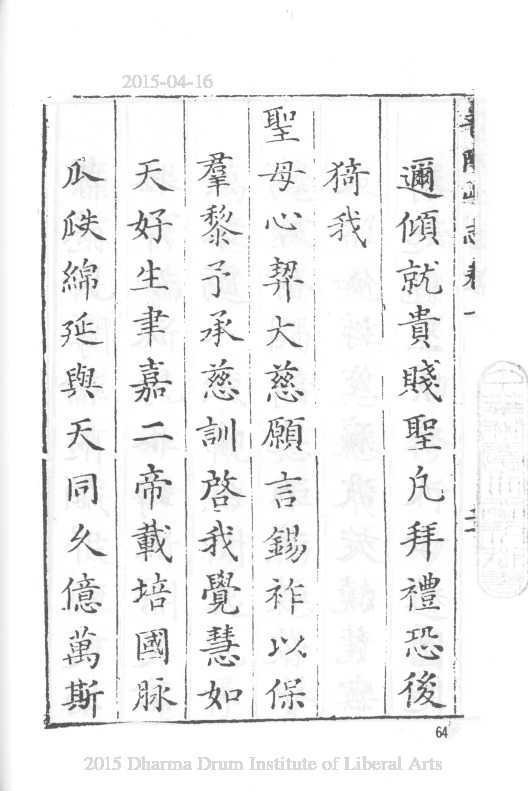 2015-04-16
邇傾就貴賤聖凡拜禮恐後
猗我
聖母心契大慈願言錫祚以保
羣黎予承慈訓啓我覺慧如
天好生聿嘉二帝載培國脉
瓜瓞綿延與天同久億萬斯
64
2015 Dharma Drum Institute of Liberal Arts